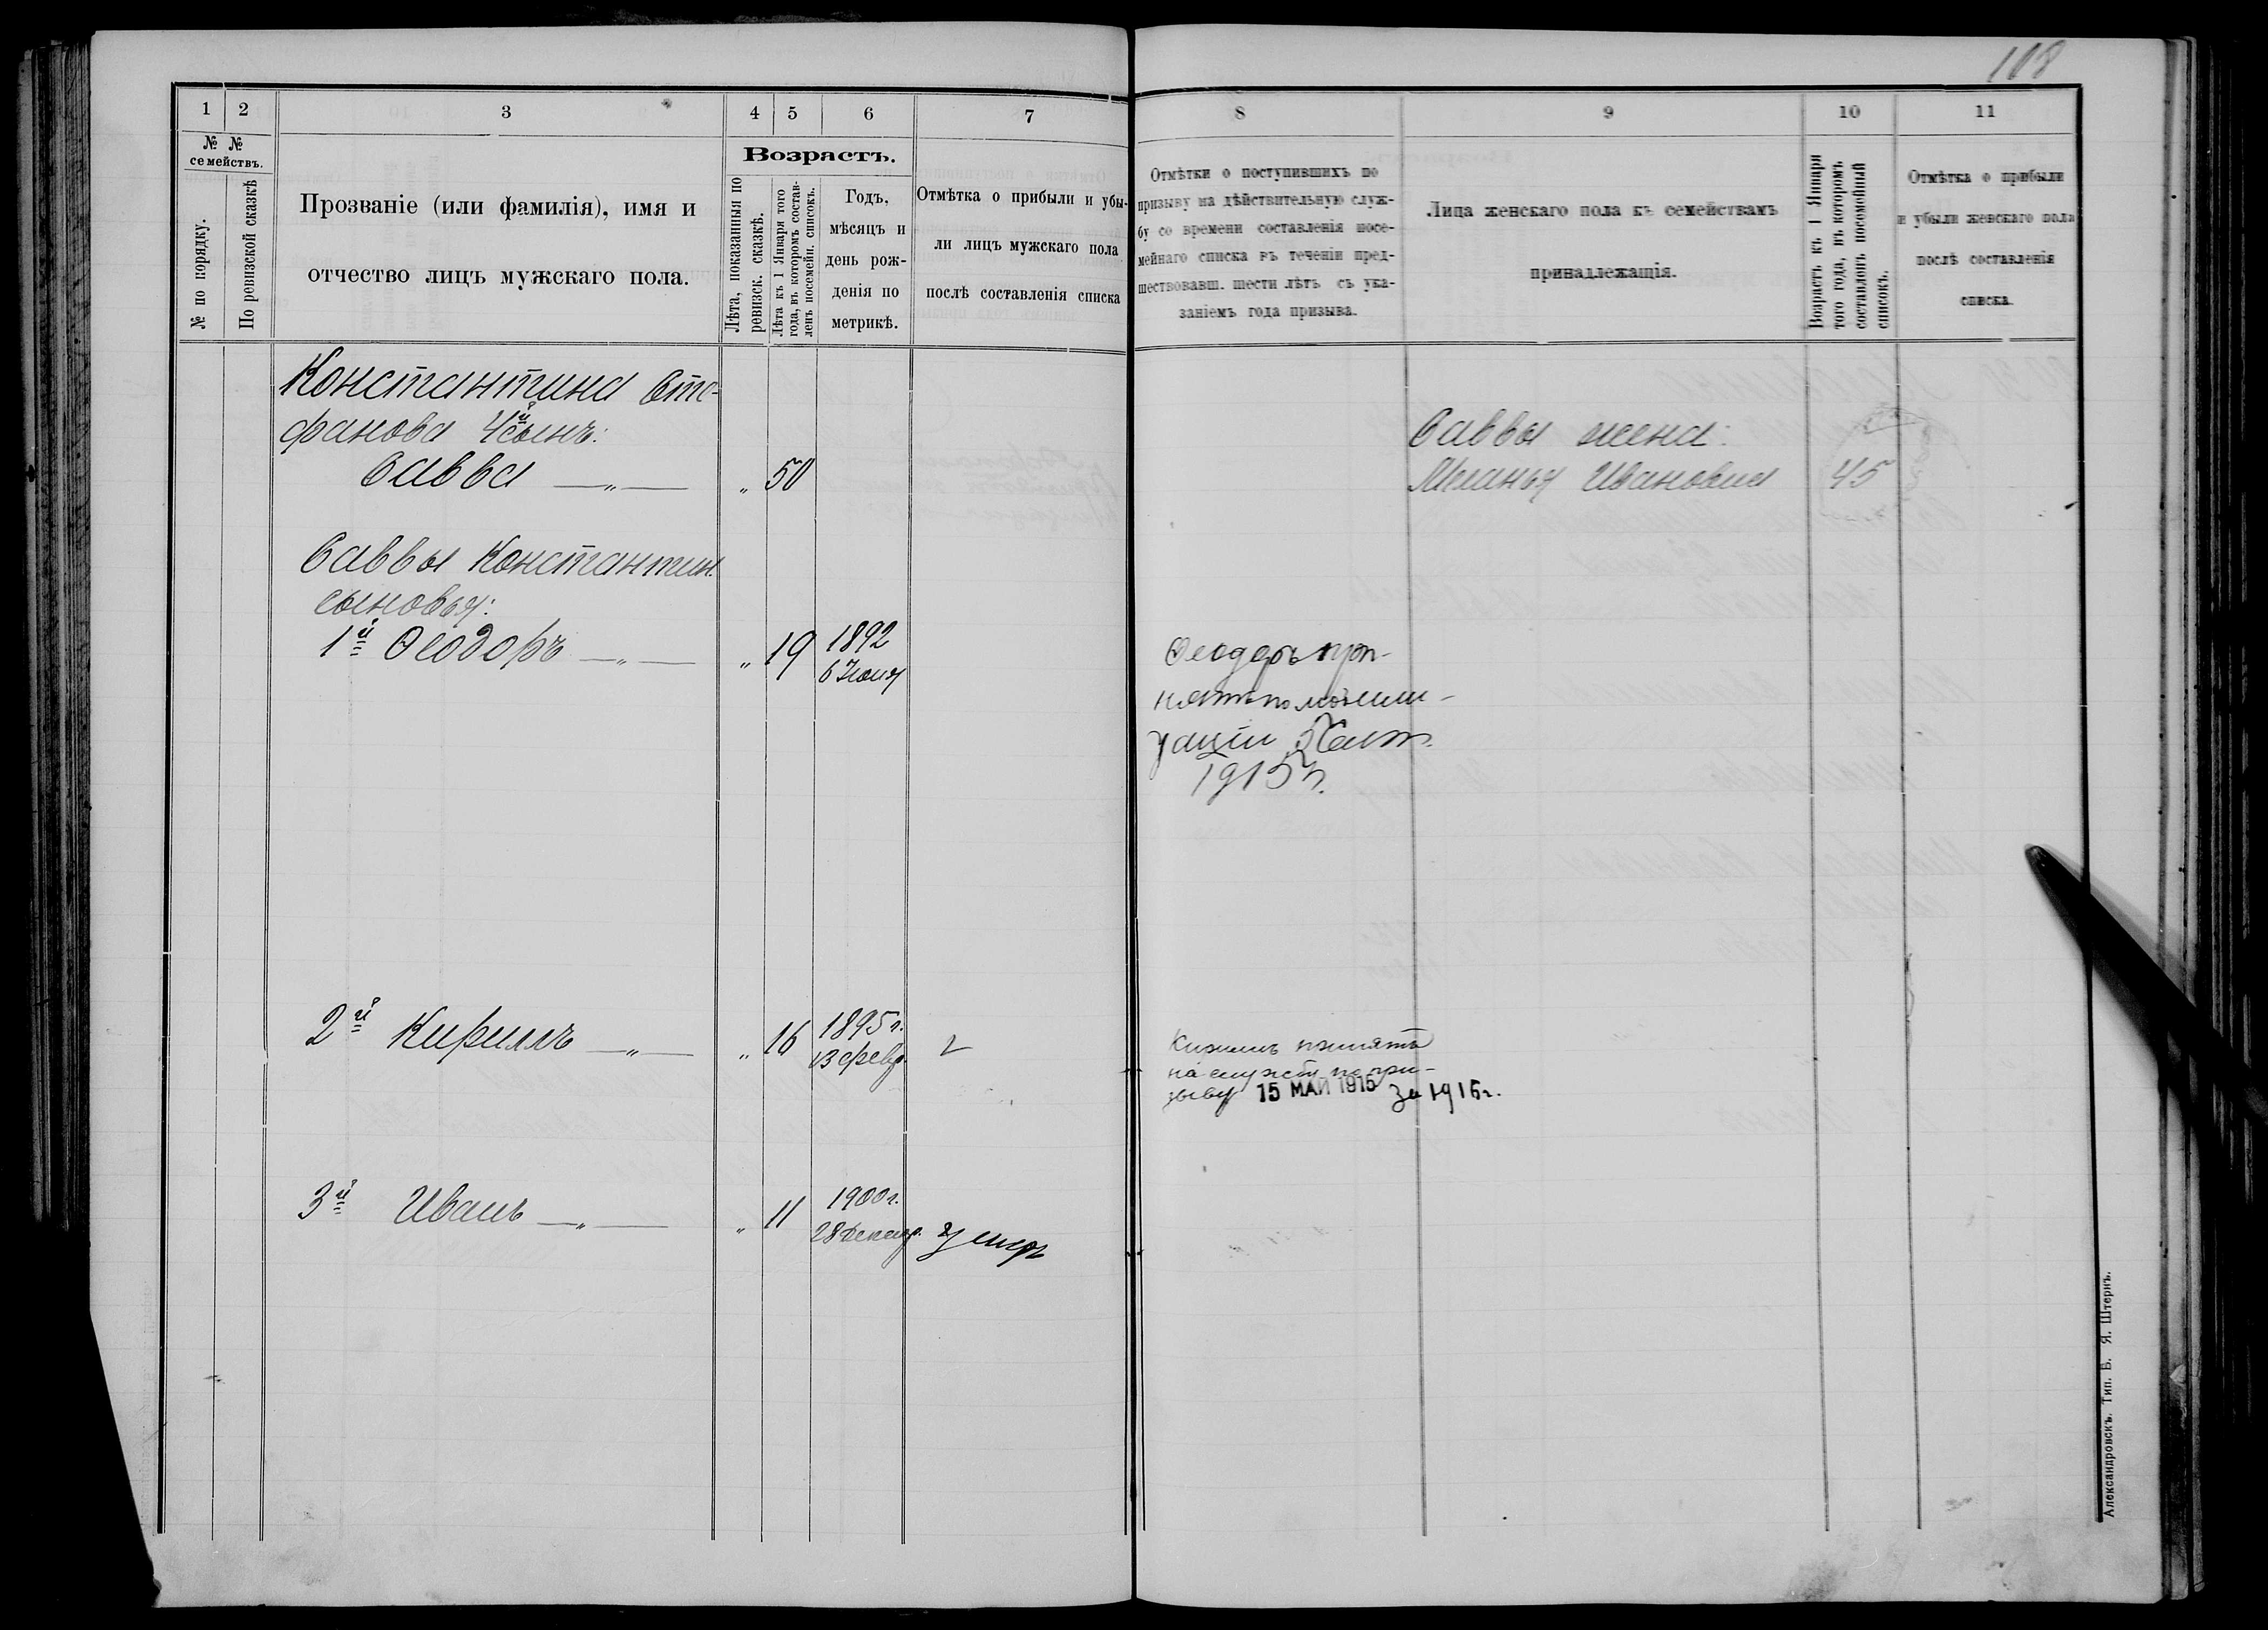 108
1 2 3 4 5 6 7
№ № семействъ.
№ по порядку.
По ревизской сказкѣ
Прозваніе (или фамилія), имя и
отчество лицъ мужскаго пола.
Возрастъ.
Лѣта, показанныя по
ревизск. сказкѣ.
Лѣта къ 1 Января того
года, въ которомъ состав-
ленъ посемейн. списокъ.
Годъ,
мѣсяцъ и
день рож-
денія по
метрикѣ.
Отмѣтка о прибыли и убы-
ли лицъ мужскаго пола
послѣ составленія списка
Константина Сте-
фанова 4й сынъ:
Савва —„— „ 50
Саввы Константин.
сыновья:
1й Ѳеодоръ —„— „ 19 1892
6 Іюня
2й Кириллъ —„— „ 16 1895 г.
13 февр.
3й Иванъ —„— „ 11 1900 г.
28 Декабр. умеръ
8 9 10 11
Отмѣтки о поступившихъ по
призыву на дѣйствительную служ-
бу со времени составленія посе-
мейнаго списка въ теченіи пред-
шествовавш. шести лѣтъ съ ука-
заніемъ года призыва.
Лица женскаго пола къ семействамъ
принадлежащія.
Возрастъ къ 1 Января
того года, въ которомъ
составленъ посемейный
списокъ.
Отмѣтка о прибыли
и убыли женскаго пола
послѣ составленія
списка.
Саввы жена:
Меланья Ивановна 45
Ѳеодоръ при-
нятъ по мобили-
зации
1915 г.
Кириллъ принятъ
на службу по при-
зыву 15 МАЙ 1915 за 1916 г.
Александровскъ. Тип. Б. Я. Штернъ.